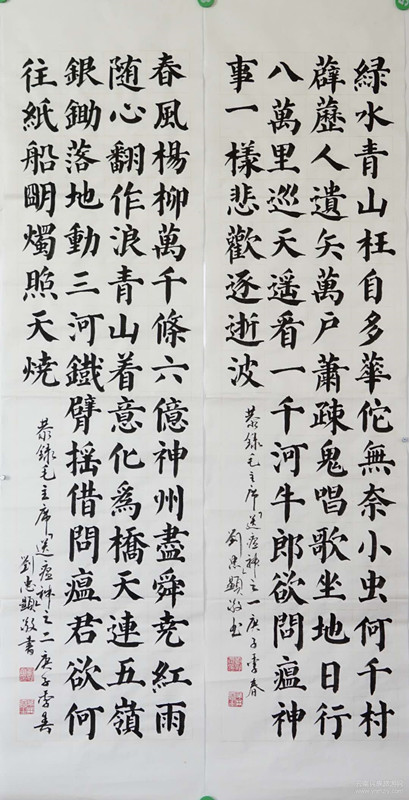 綠水青山枉自多華佗無奈小虫何千村
薜藶人遺矢萬戶蕭疎鬼唱歌坐地日行
八萬里巡天遥看一千河牛郎欲問瘟神
事一樣悲歡逐逝波
恭錄毛主席「送瘟神」之一庚子季春
劉忠顯敬書
春風楊柳萬千條六億神州盡舜堯紅雨
随心翻作浪青山着意化爲橋天連五嶺
銀鋤落地動三河鐵臂摇借問瘟君欲何
往紙船朙燭照天燒
恭錄毛主席「送瘟神」之二庚子季春
劉忠顯敬書